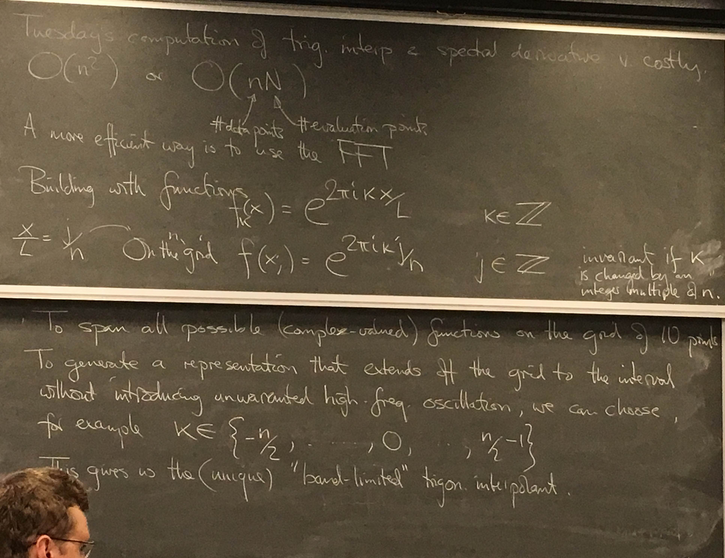 Tuesday's computation of trig. interp & spectral derivative v. costly.
O(n²) or O(nN)
#data points #evaluation points
A more efficient way is to use the FFT
Building with functions f_k(x) = e^{2πikx/L} k∈ℤ
x/L = j/n On the grid f(x_j) = e^{2πikj/n} j∈ℤ invariant if k
is changed by an
integer multiple of n.
To span all possible (complex-valued) functions on the grid of 10 points
To generate a representation that extends off the grid to the interval
without introducing unwarranted high-freq. oscillation, we can choose,
for example k∈{-n/2, ......, 0, ...., n/2-1}
This gives us the (unique) "band-limited" trigon. interpolant.